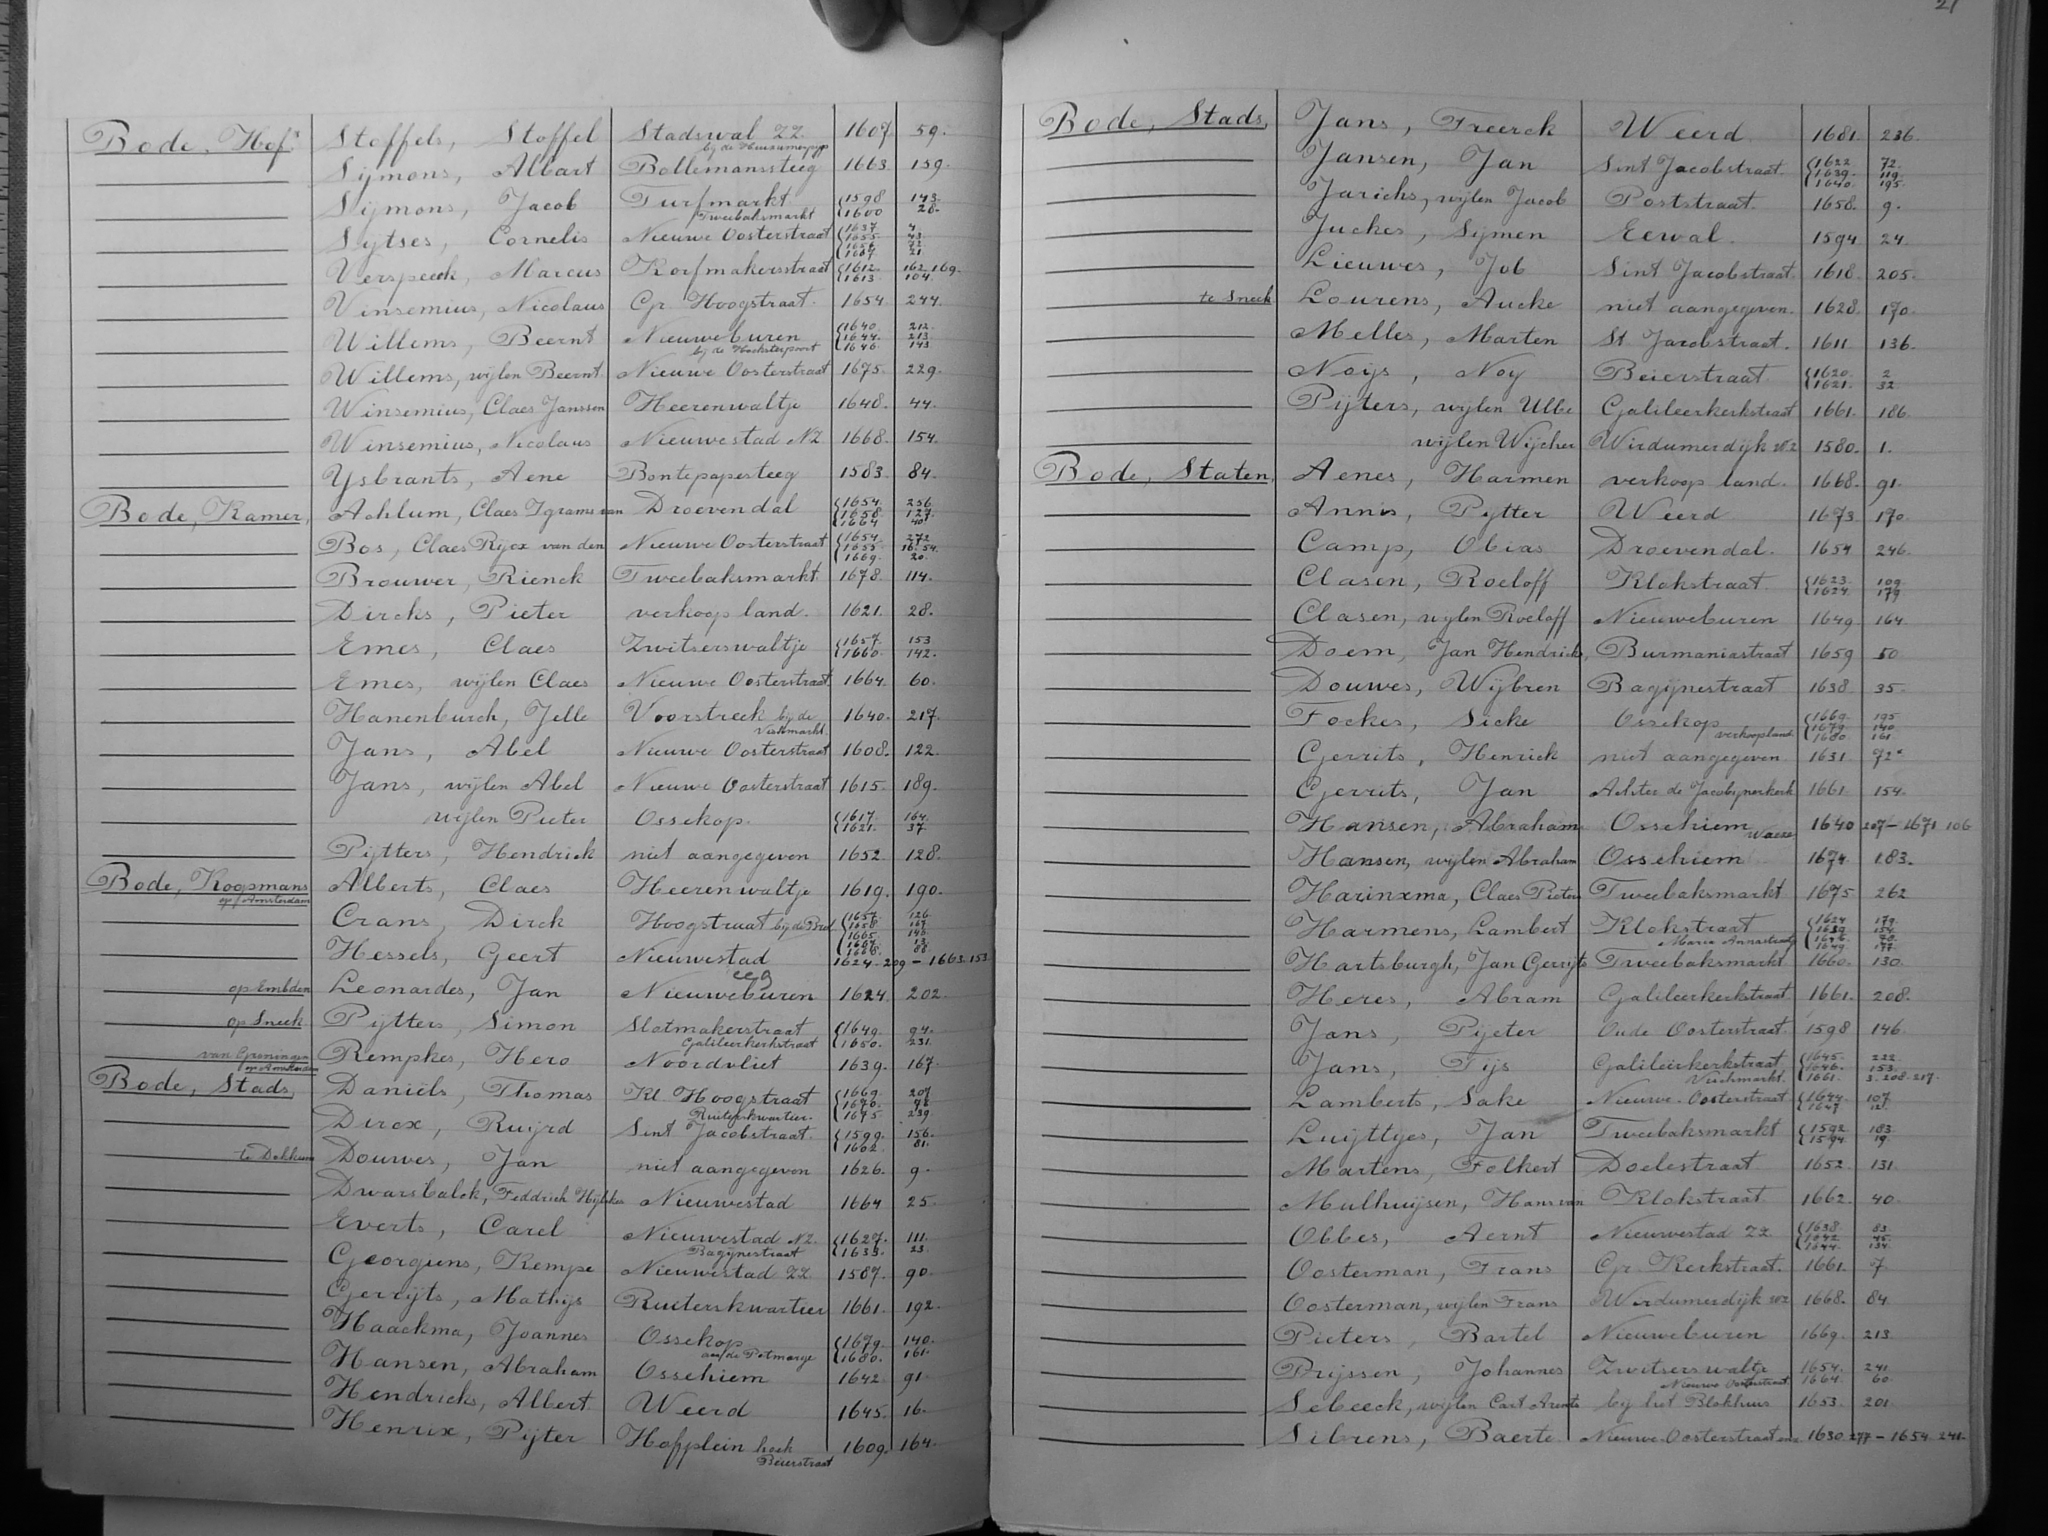 21
Bode, Hofs Stoffels, Stoffel Stadswal ZZ. 1607. 59.
bij de Huizumerpijp
Sijmons, Albart Bollemanssteeg 1663 159.
Sijmons, Jacob Turfmarkt 1598 143.
Tweebaksmarkt 1600 28.
Sytses, Cornelis Nieuwe Oosterstraat 1637 4.
1655. 43.
1656 72.
1667 21
Verspeeck, Marcus Korfmakersstraat 1612. 162.169.
1613 104.
Vinsemius, Nicolaus Gr. Hoogstraat. 1654. 244.
Willems, Beernt Nieuweburen 1640. 212.
1644. 213.
bij de Hoeksterpoort 1646. 143.
Willems, wijlen Beernt Nieuwe Oosterstraat 1675. 229.
Winsemius, Claes Janssen Heerenwaltje 1648. 44.
Winsemius, Nicolaus Nieuwestad NZ 1668. 154.
Ysbrants, Aene Bontepapesteeg 1583 84.
Bode, Kamer, Achlum, Claes Igrams van Droevendal 1654. 256.
1658. 127.
1664 40.
Bos, Claes Rijcx van den Nieuwe Oosterstraat 1654. 272
1655. 16.54.
1669. 20.
Brouwer, Rienck Tweebaksmarkt 1678. 114.
Dircks, Pieter verkoop land. 1621. 28.
Emes, Claes Zwitserswaltje 1657. 153
1660. 142.
Emes, wijlen Claes Nieuwe Oosterstraat 1664. 60.
Hanenburch, Jelle Voorstreek bij de 1640. 217.
Vischmarkt.
Jans, Abel Nieuwe Oosterstraat 1608. 122.
Jans, wijlen Abel Nieuwe Oosterstraat 1615. 189.
wijlen Pieter Ossekop. 1617. 164.
1621. 37
Pijtters, Hendrick niet aangegeven 1652. 128.
Bode, Koopmans Alberts, Claes Heerenwaltje 1619. 190.
op Amsterdam
Crans, Dirck Hoogstraat bij de Brol 1657. 126.
1658 167.
1665. 146.
1667. 13.
1668. 88.
Hessels, Geert Nieuwestad 1624. 209 - 1663. 153
op Embden Leonardes, Jan Nieuweburen 1624. 202.
op Sneek Pijtters, Simon Slotmakerstraat 1649. 94.
Galileerkerkstraat 1650. 231.
van Groningen Rempkes, Hero Noordvliet 1639. 167.
op Amsterdam
Bode, Stads, Daniels, Thomas Kl. Hoogstraat 1669. 207
1670. 78.
Ruiterskwartier. 1675 239.
Dircx, Ruijrd Sint Jacobstraat. 1599. 156.
1602. 81.
te Dokkum Douwes, Jan niet aangegeven 1626. 9.
Dwarsbalck, Feddrick Hijlckes Nieuwestad 1664 25.
Everts, Carel Nieuwestad NZ. 1627. 111.
Bagijnestraat 1633. 23.
Georgiens, Kempe Nieuwestad ZZ. 1587. 90.
Gerrijts, Mathijs Ruiterskwartier 1661. 192.
Haackma, Joannes Ossekop 1679. 140.
aan de Potmarge 1680. 161.
Hansen, Abraham Ossehiem 1642. 91.
Hendricks, Albert. Weerd 1645. 16.
Henrix, Pijter Hofplein hoek 1609. 164.
Beierstraat
Bode, Stads, Jans, Freerck Weerd 1681. 236.
Jansen, Jan Sint Jacobstraat. 1622. 72.
1639. 119.
1640. 195.
Jarichs, wijlen Jacob Poststraat. 1658. 9.
Juckes, Sijmen Eewal. 1594. 24.
Lieuwes, Job Sint Jacobstraat. 1618. 205.
te Sneek Lourens, Aucke niet aangegeven. 1628. 170.
Melles, Marten St Jacobstraat. 1611. 136.
Noijs, Noy Beierstraat. 1620. 2
1621. 32
Pijters, wijlen Ulbe Galileerkerkstraat 1661. 186.
wijlen Wijcher Wirdumerdijk WZ 1580. 1.
Bode, Staten, Aenes, Harmen verkoop land. 1668. 91.
Annis, Pytter Weerd 1673 170.
Camp, Obias Droevendal. 1654 246.
Clasen, Roeloff Klokstraat 1623. 109.
1624. 179
Clasen, wijlen Roeloff Nieuweburen 1649. 164.
Doem, Jan Hendricks, Burmaniastraat 1659 50
Douwes, Wijbren Bagijnestraat 1638. 35.
Fockes, Sicke Ossekop 1669. 195
1679. 140.
verkoop land. 1680. 161.
Gerrits, Henrick niet aangegeven 1631. 92.
Gerrits, Jan Achter de Jacobijnerkerk 1661. 154.
Hansen, Abraham Ossehiem 1640 207 - 1671 106
Waeze
Hansen, wijlen Abraham Ossehiem 1674. 183.
Harinxma, Claes Pieters Tweebaksmarkt 1675 262
Harmens, Lambert Klokstraat 1624 179.
1639. 154.
Maria Annastraat 1646. 70.
1649. 177.
Hartsburgh, Jan Gerrijts Tweebaksmarkt 1660. 130.
Heres, Abram Galileerkerkstraat 1661. 208.
Jans, Pijeter Oude Oosterstraat. 1598 146.
Jans, Tijs Galileerkerkstraat 1645. 222.
1646. 153.
Vischmarkt. 1661. 3.208.217.
Lamberts, Sake Nieuwe Oosterstraat 1644. 107
1647 12.
Luijttyes, Jan Tweebaksmarkt 1592. 183.
1594. 19.
Martens, Folkert Doelestraat 1652. 131.
Mulhuijsen, Hans van Klokstraat 1662. 40.
Obbes, Aernt Nieuwestad ZZ. 1638. 83
1642 45.
1644. 134.
Oosterman, Frans Gr. Kerkstraat. 1661. 7
Oosterman, wijlen Frans Wirdumerdijk WZ 1668. 84.
Pieters, Bartel Nieuweburen 1669. 213
Prijssen, Johannes Zwitserswaltje 1654. 241.
Nieuwe Oosterstraat 1664. 60.
Sebeeck, wijlen Cart Arents bij het Blokhuis 1653. 201
Sibrens, Baerte. Nieuwe Oosterstraat 1630 277 - 1654 241.